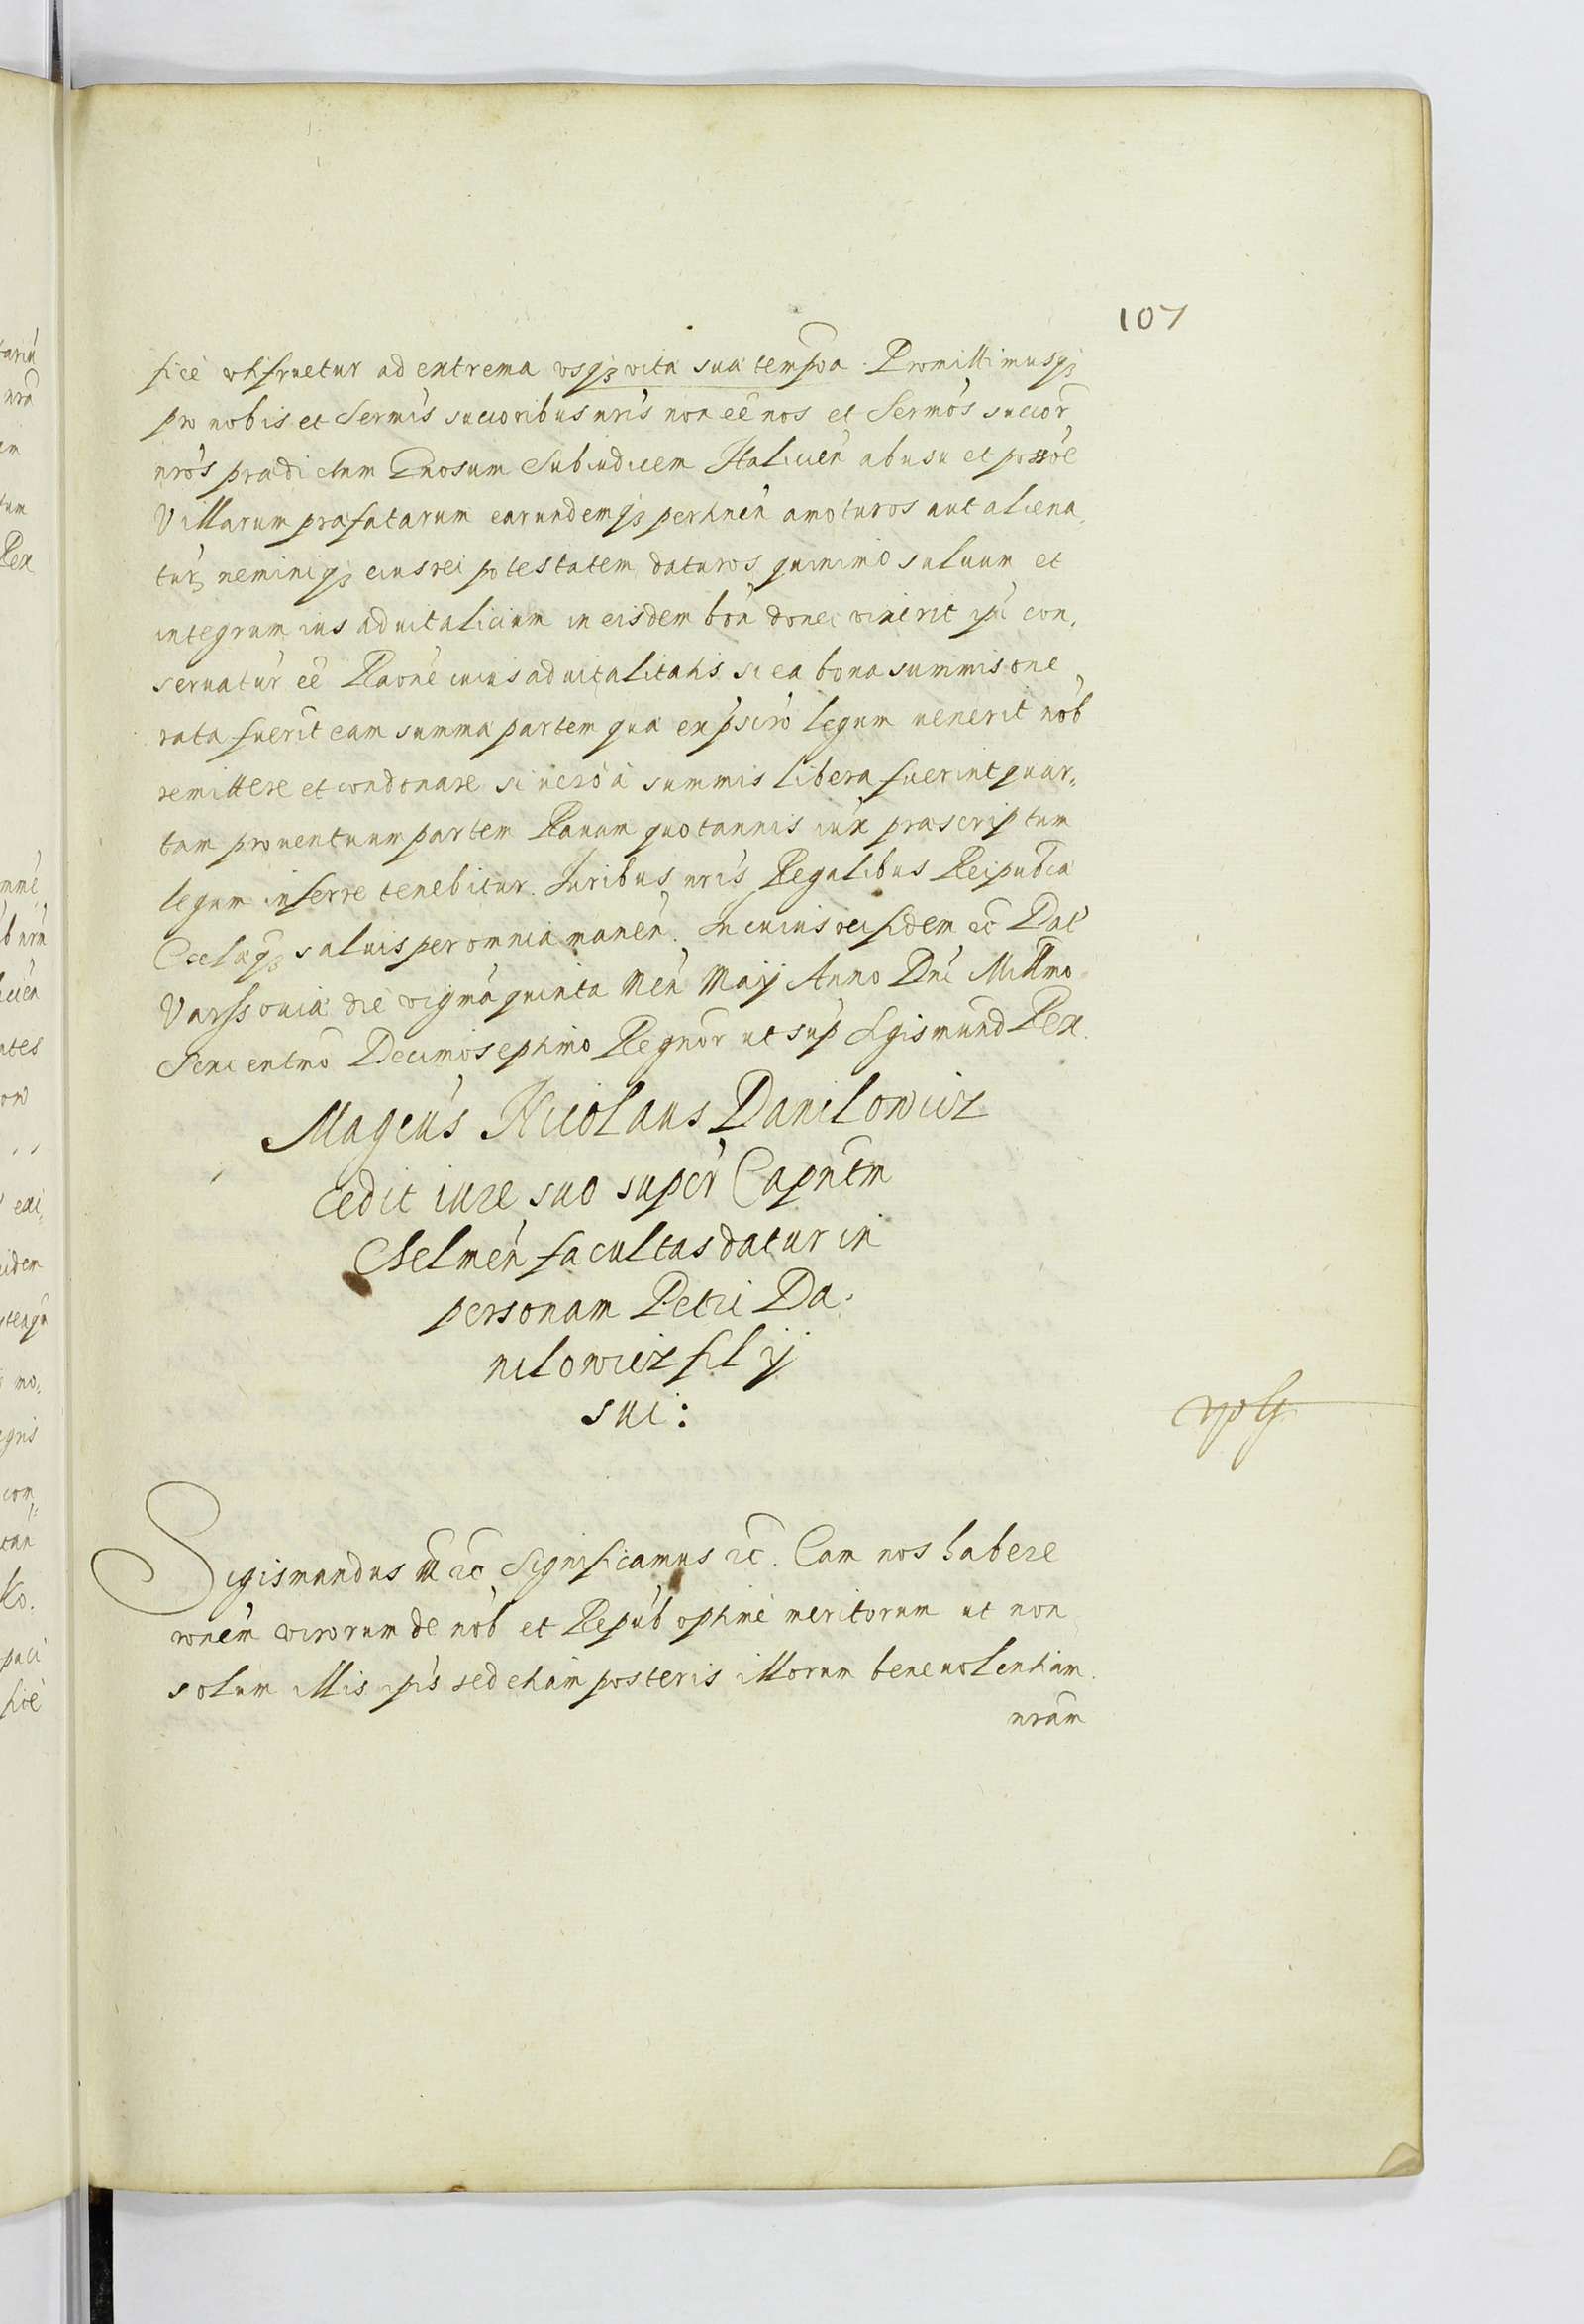 107
fice vtifruetur ad extrema vsq3 vitæ suæ tempora. Promittimusq3
pro nobis et Sermis succoribus nris non eē nos et Sermos succor
nros prædictum Gnosum Subiudicem Haliciēn ab usu et possōe
Villarum præfatarum earundemq3 pertinēn amoturos aut aliena„
tur, neminiq3 eius rei potestatem daturos quinimo saluum et
integrum ius aduitalicium in eisdem bon donec vixerit ipi con„
seruatur eē Raōne cuius aduitalitatis si ea bona summis one„
rata fuerit eam summæ partem quæ ex pscro legum uenerit nob
remittere et condonare si uero à summis libera fuerint quar„
tam prouentuum partem Rauam quotannis iux præscriptum
legum inferre tenebitur. Iuribus nris Regalibus Reipublicæ
Eccl æq3 saluis per omnia manēn. In cuius rei fidem &c Dat
Varssouiæ die vigmâ quinta Mēn Maij Anno Dni Millmo
Sexcentmo Decimoseptimo Regnor ut sup Sigismund Rex.
Magcus Nicolaus Danilowicz
cedit iure suo super Capntm
Chelmēn facultas datur in
personam Petri Da„
nilowicz filij
sui:
Sigismundus III &c Significamus &c. Cum nos habere
ronem virorum de nob et Repub optime meritorum ut non
solum illis ipis sed etiam posteris illorum beneuolentiam
nram